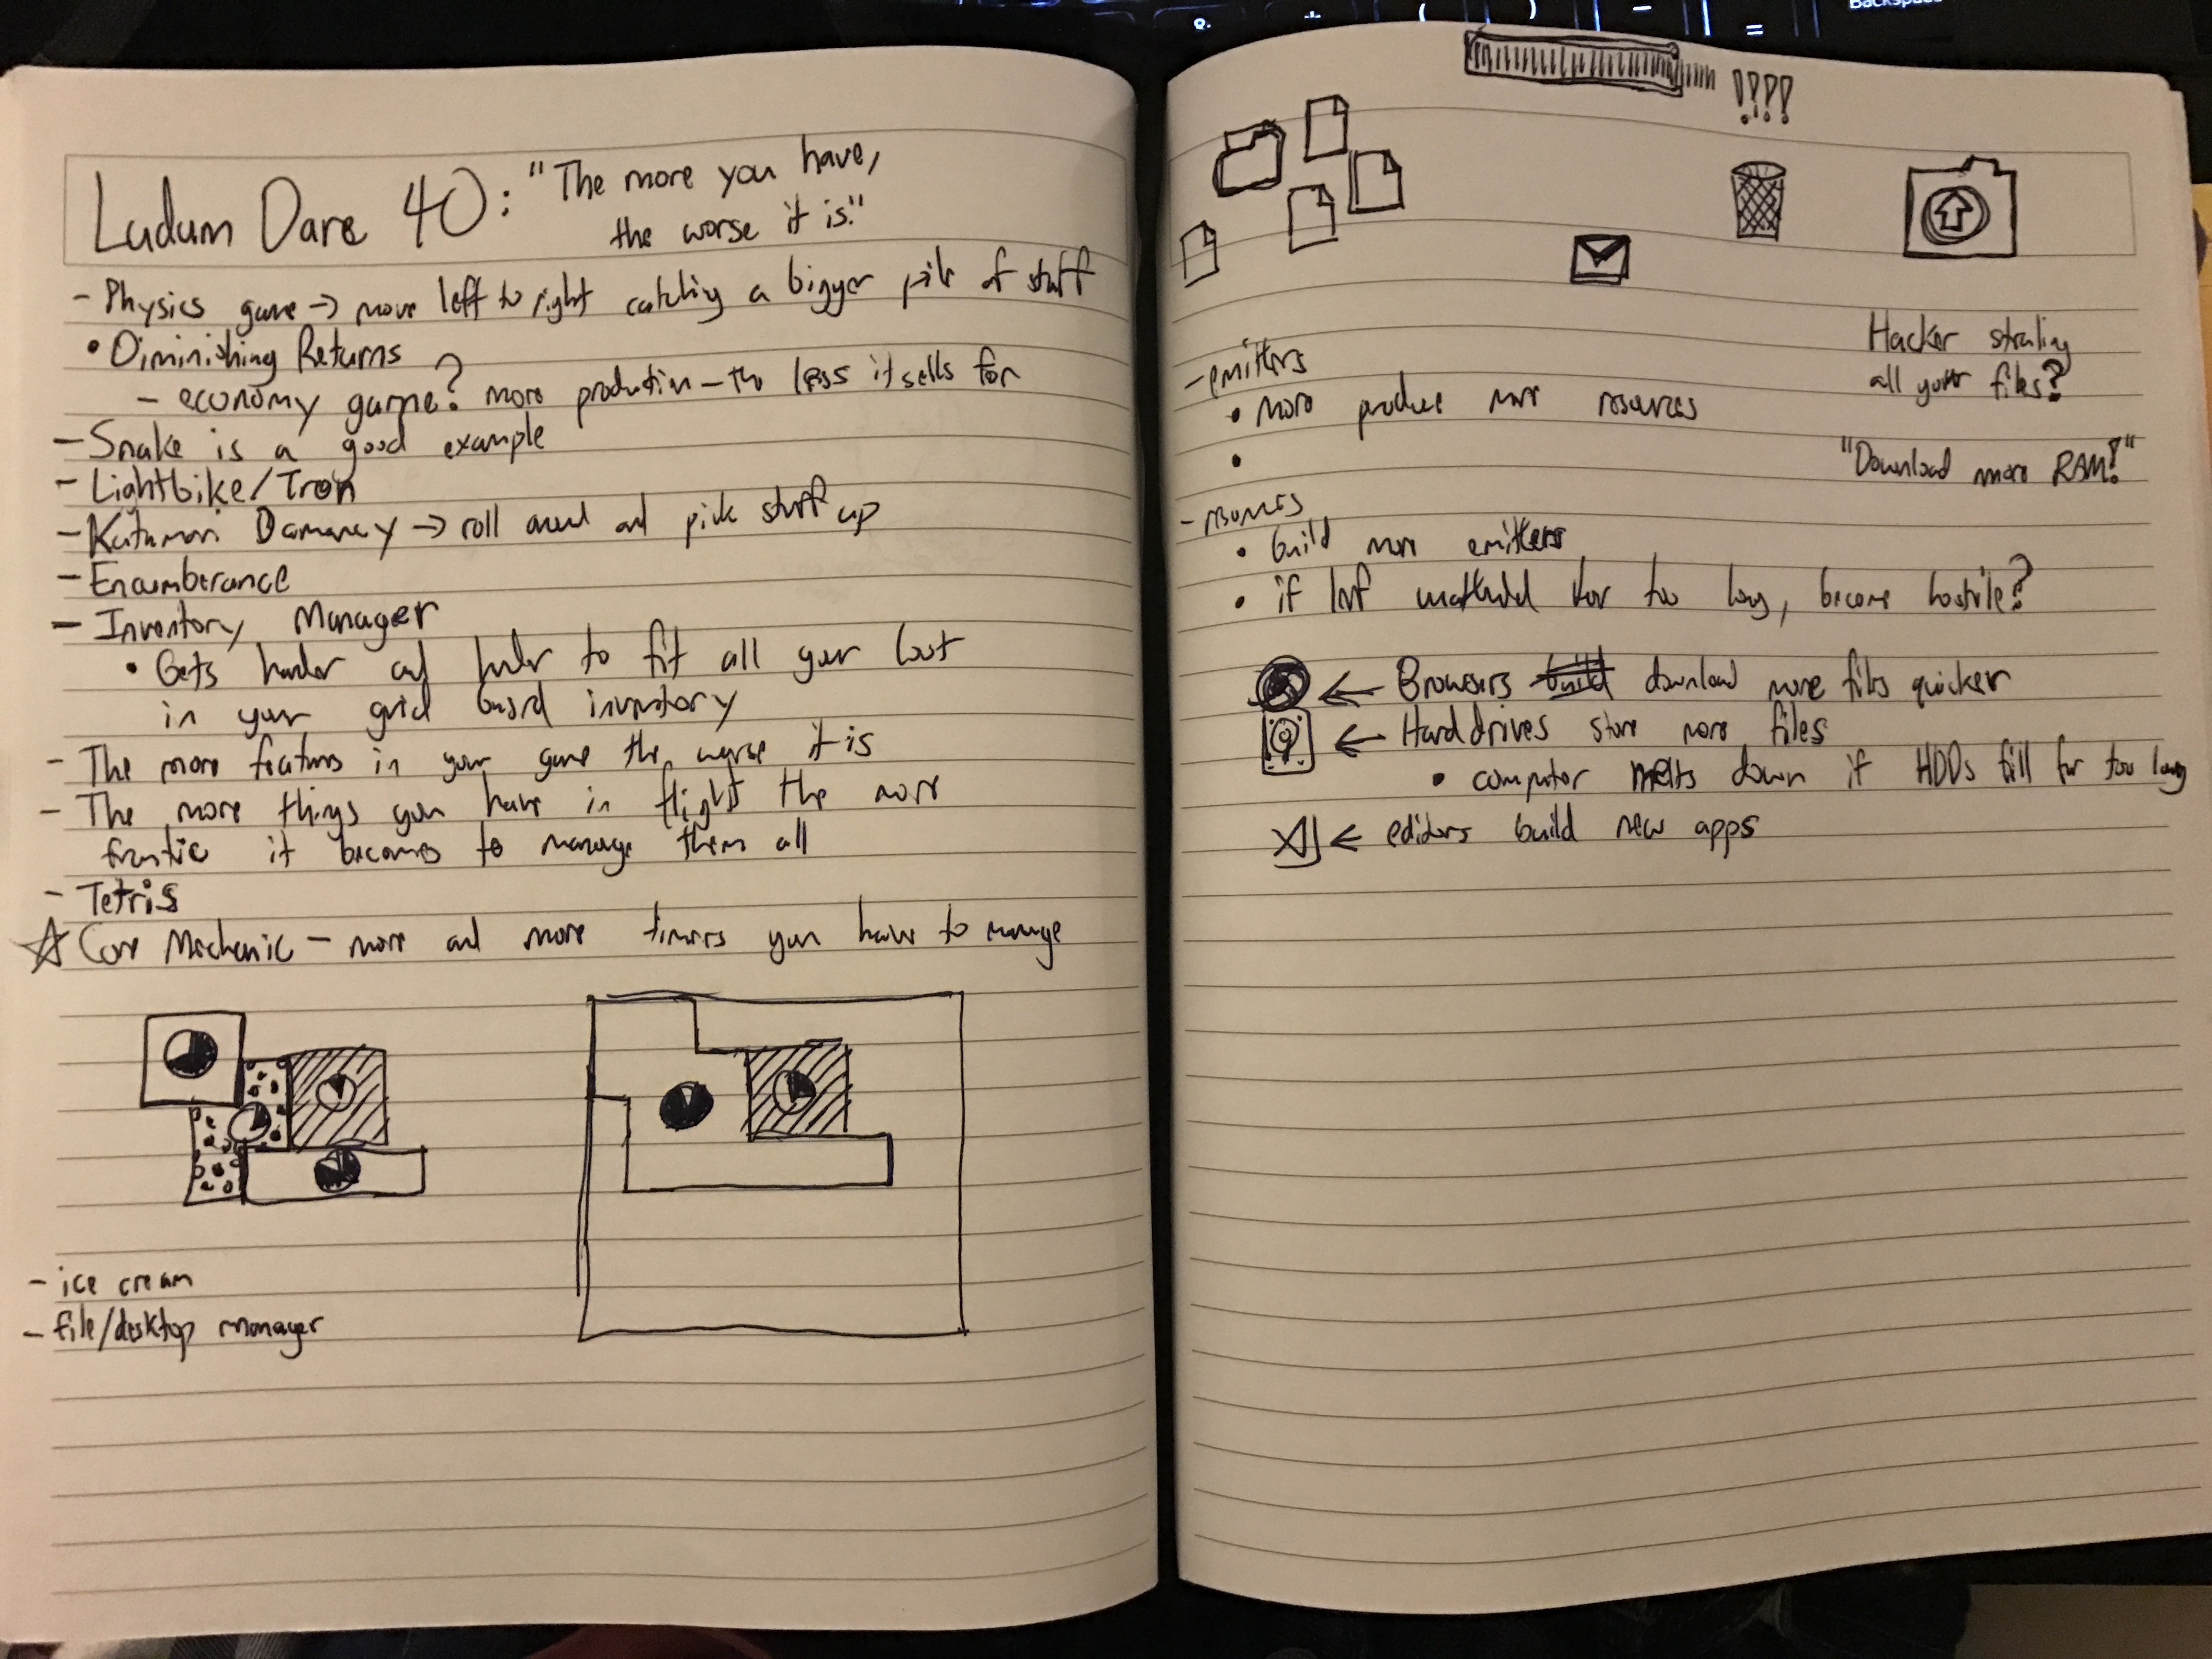 Ludum Dare 40: "The more you have,
the worse it is."
- Physics game → move left to right catching a bigger pile of stuff
• Diminishing Returns
- economy game? more production - the less it sells for
- Snake is a good example
- Lightbike/Tron
- Katamari Damancy → roll around and pick stuff up
- Encumberance
- Inventory Manager
• Gets harder and harder to fit all your loot
in your grid based inventory
- The more features in your game the worse it is
- The more things you have in flight the more
frantic it becomes to manage them all
- Tetris
☆ Core Mechanic - more and more timers you have to manage
- ice cream
- file/desktop manager
!!!!
Hacker stealing
all your files?
- emitters
• more produce more resources
•
"Download more RAM!"
- resources
• build more emitters
• if left unattended for too long, become hostile?
← Browsers build download more files quicker
← Hard drives store more files
• computer melts down if HDDs fill for too long
← editors build new apps
Backspace
&
*
(
)
-
=